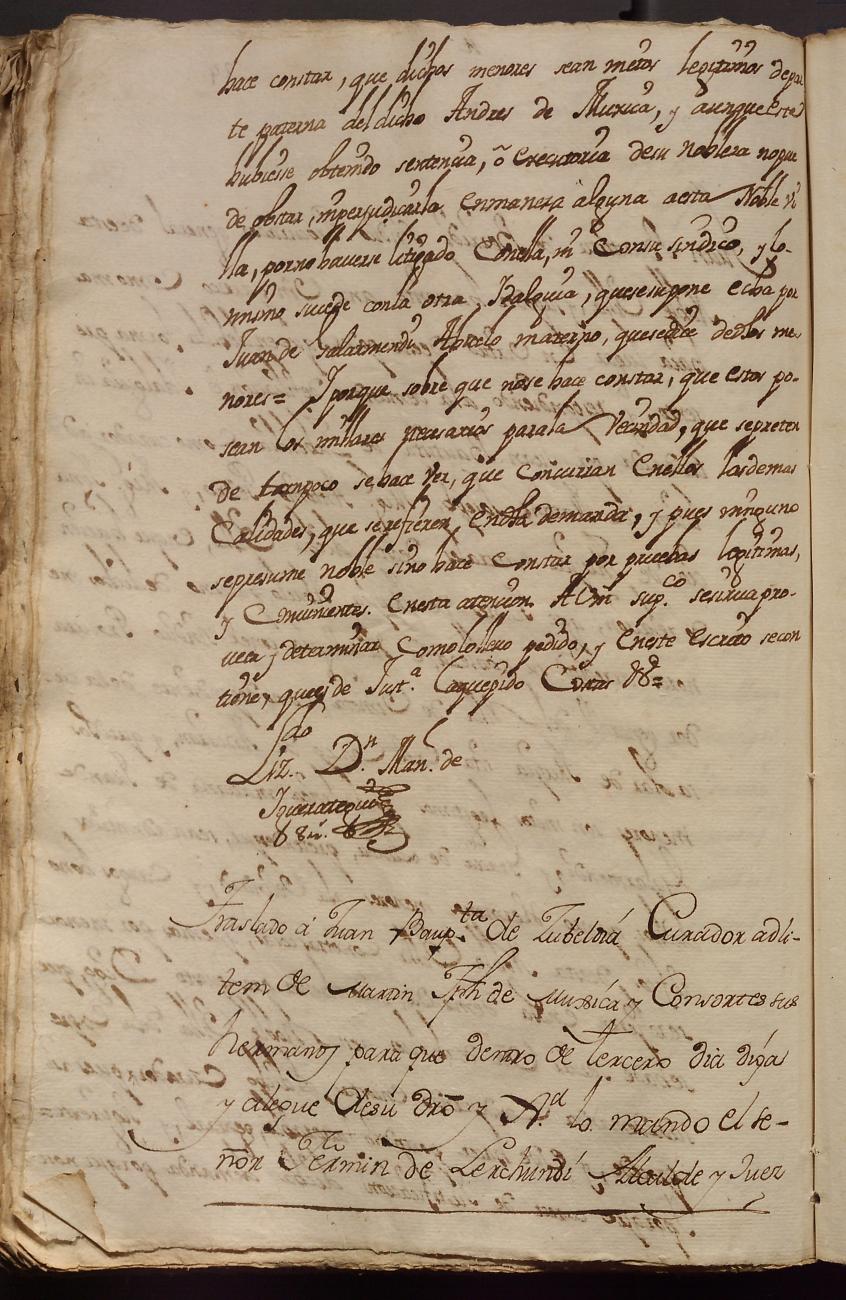 hace constar, que dichos menores sean nietos legitimos depar
te paterna del dicho Andres de Muxica, y aunque este
hubiesse obtenido sentencia, ô executoria desu nobleza nopue
de obstar, niperjudicarla enmanera alguna aesta Noble Vi
lla, porno haverse litigado Conella, ni Consu sindico, y lo
mismo sucede conla otra Idalguia, quesesupone echa por
Juan de Galarmendi Abuelo materno,quesedice dedhos me
nores = Y porque sobre que nose hace constar, que estos po-
sean los millares necesarios parala Vecindad, que sepreten
de tampoco sehace ver, que concurran Enellos lasdemas
Calidades, que serefieren Endha demanda, y pues ninguno
sepresume noble sino hace Constar por pruebas legitimas,
y Conuinientes. Enesta atencion A Vm sup.co sesirua pro-
veer, y determinar Comolollevo pedido, y Eneste Escrito secon
tiene, quees de Just.a laquepido Costas &a =
Liz.do D.n Man.l de

Traslado a Juan Baup.ta de Zubeldia Curador adli-
tem de Martin Jph de Muxica y Consortes sus
hermanos para que dentro de tercero dia diga
y alegue de su dro y
lo mando el se-
ñor Fermin de Lerchundi Alcalde y Juez